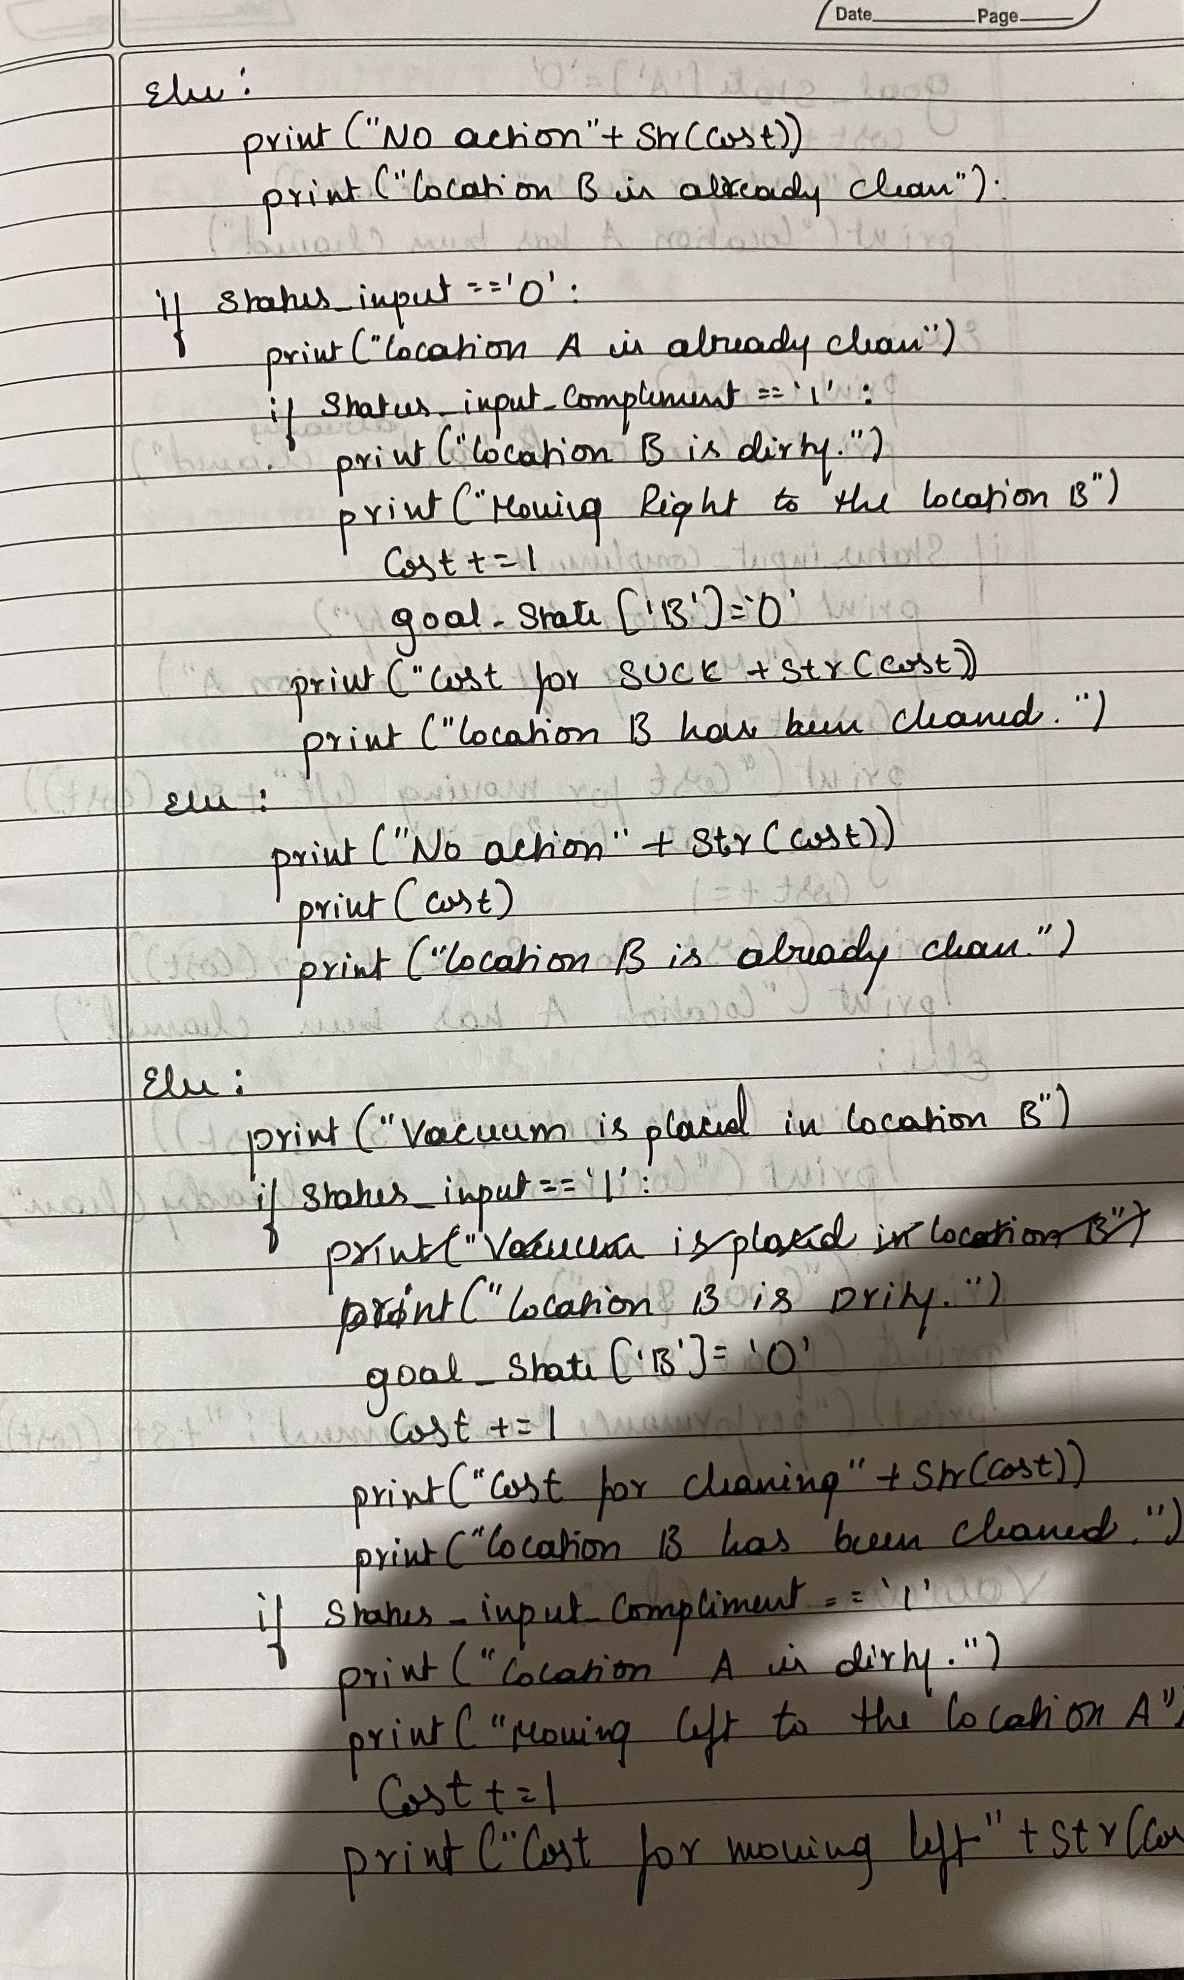 Date Page
Else :
print ("No action"+ Str(Cost))
print ("location B is already clean"):
if Status_input =='0' :
print ("location A is already clean")
if Status_input_Compliment == '1' :
print ("location B is dirty.")
print ("Moving Right to the location B")
Cost +=1
goal_State ['B']='0'
print ("Cost for SUCK + Str (cost))
print ("location B has been cleaned.")
Else :
print ("No action" + Str (Cost))
print (Cost)
print ("location B is already clean.")
Else :
print ("Vacuum is placed in location B")
if Status_input == '1' :
print ("Vacuum is placed in location B")
print ("location B is Drity.")
goal_State ['B']= '0'
Cost +=1
print ("Cost for cleaning" + Str(Cost))
print ("location B has been cleaned.")
if Status_input_Compliment == '1'
print ("location A is dirty.")
print ("Moving left to the location A")
Cost +=1
print ("Cost for moving left" + Str (Cos